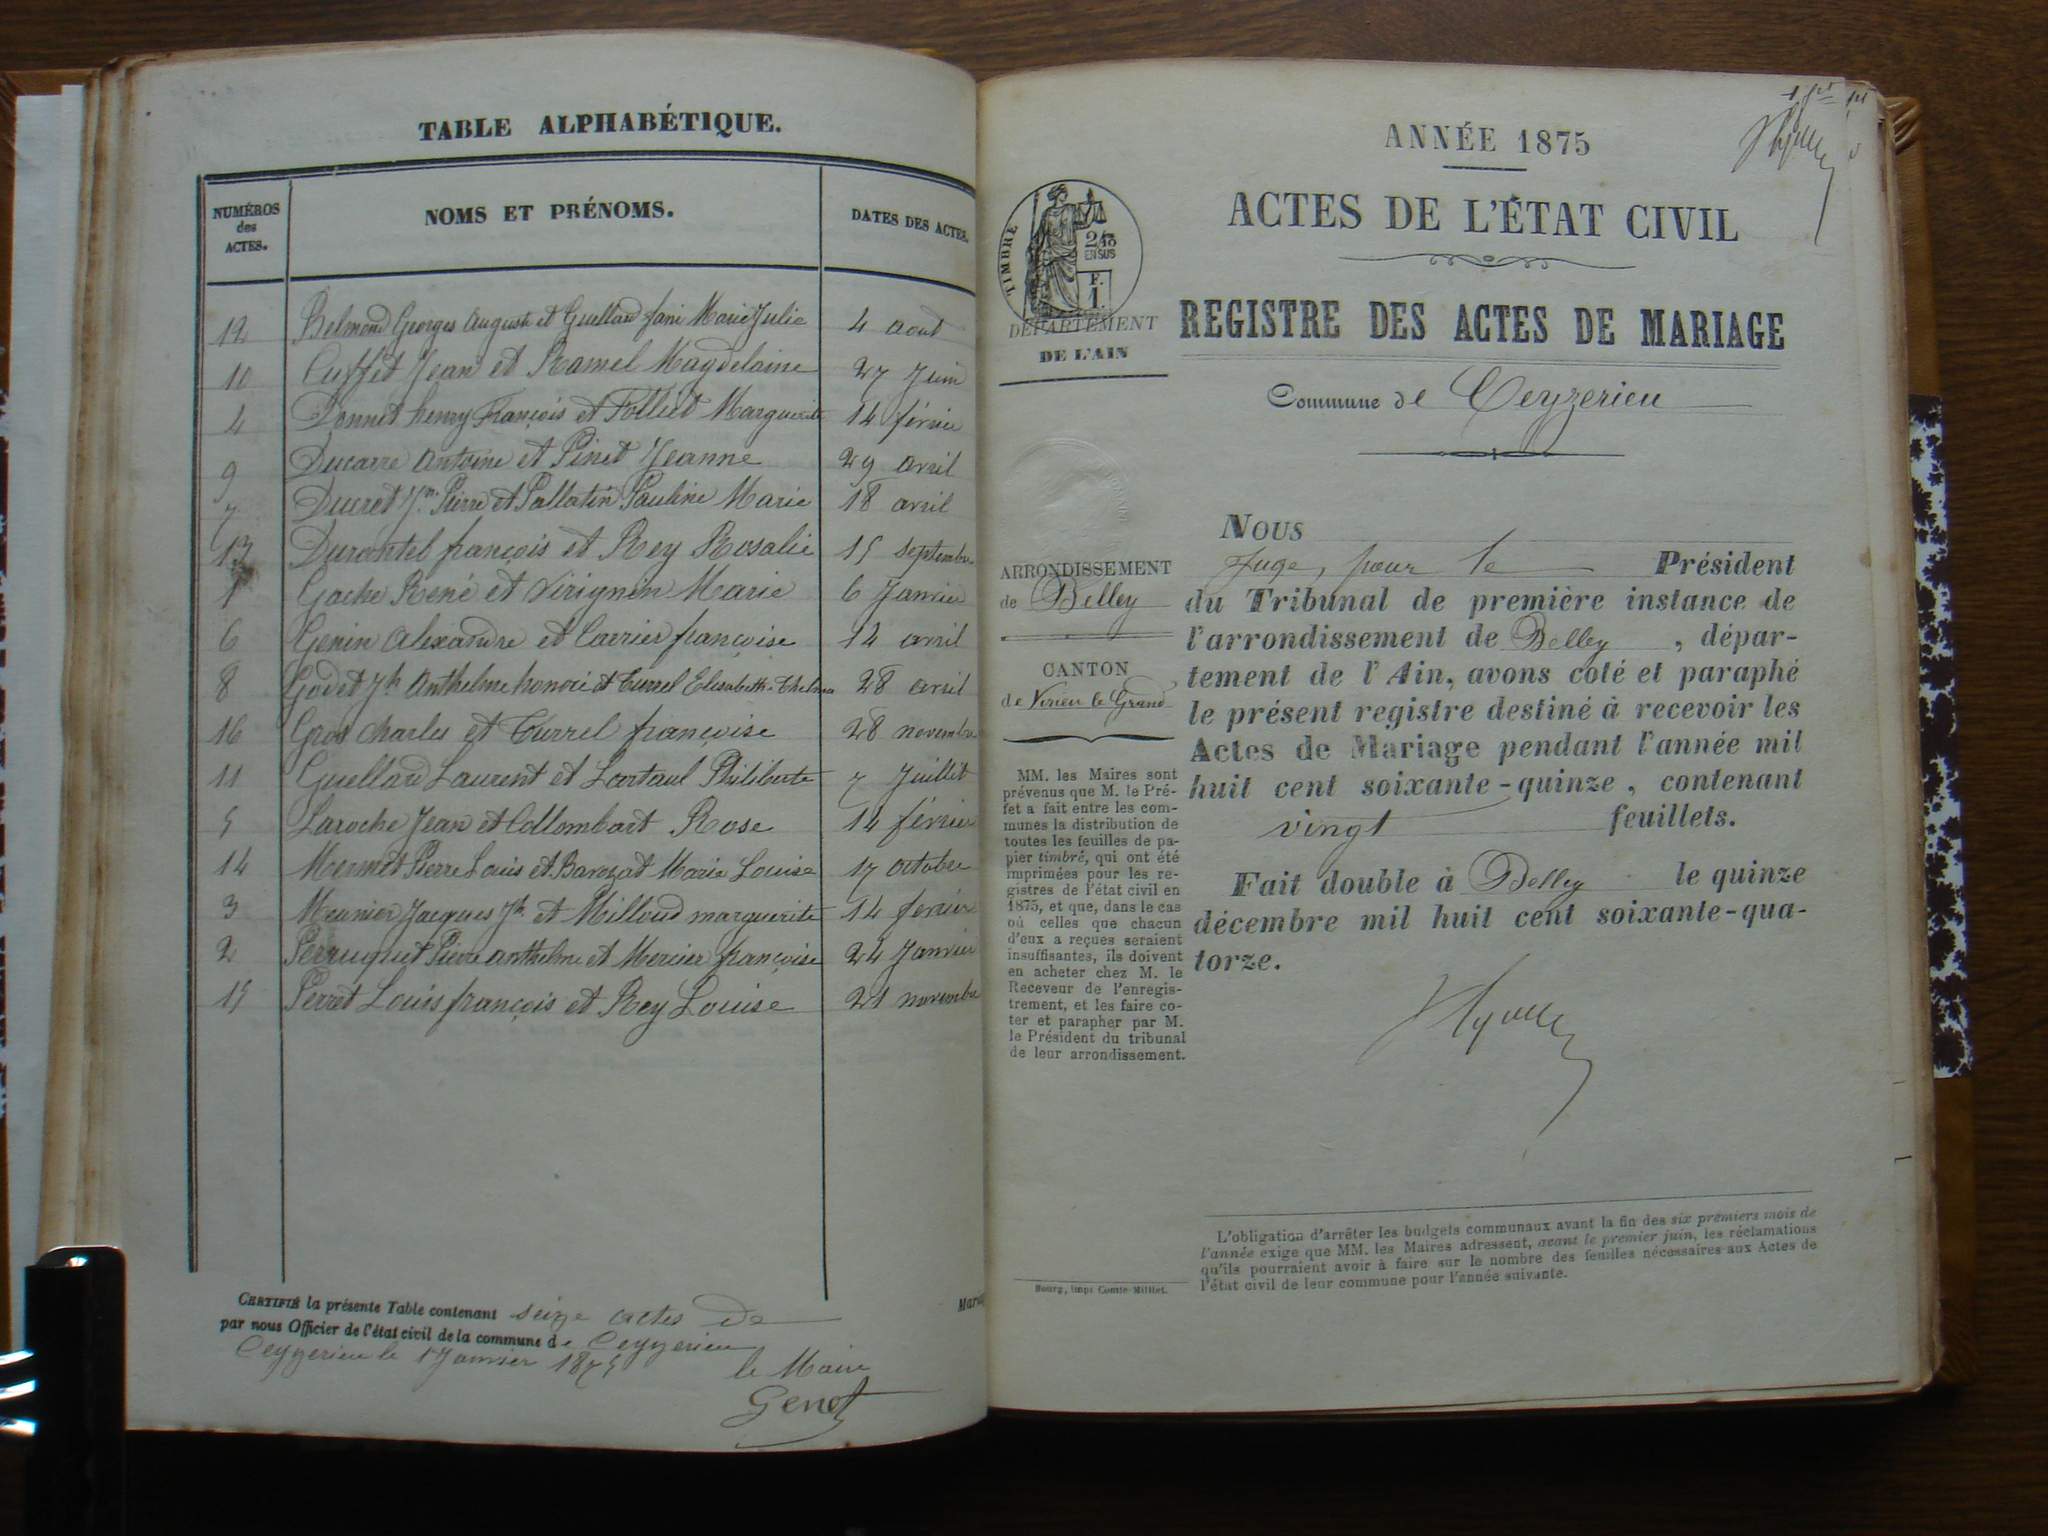 TABLE ALPHABÉTIQUE.
NUMÉROS des ACTES. NOMS ET PRÉNOMS. DATES DES ACTES.
12 Belmond Georges Auguste et Guillaud fani Marie Julie 4 aout
10 Cuffet Jean et Ramel Magdelaine 27 Juin
4 Donnet henry François et Folliet Marguerite 14 février
9 Ducarre Antoine et Pinet Jeanne 29 avril
7 Ducret Jn. Pierre et Pallatin Pauline Marie 18 avril
13 Durantel françois et Rey Rosalie 15 septembre
1 Gache René et Virignin Marie 6 Janvier
6 Genin Alexandre et Carrier françoise 14 avril
8 Godet Jh Anthelme honoré et Turrel Elisabeth 28 avril
16 Gros Charles et Turrel françoise 28 novembre
11 Guillaud Laurent et Lartaud Philiberte 7 Juillet
5 Laroche Jean et Collombart Rose 14 février
14 Mermet Pierre Louis et Barozat Marie Louise 17 octobre
3 Meunier Jacques Jh. et Milloud marguerite 14 fevrier
2 Perruquet Pierre anthelme et Mercier françoise 24 Janvier
15 Perret Louis françois et Rey Louise 21 novembre
CERTIFIÉ la présente Table contenant seize actes de
par nous Officier de l'état civil de la commune de Ceyzerieu
Ceyzerieu le 1 Janvier 1875
le Maire
Genet
ANNÉE 1875
ACTES DE L'ÉTAT CIVIL
REGISTRE DES ACTES DE MARIAGE
Commune de Ceyzerieu
TIMBRE
2/10
EN SUS
F.
1.
DÉPARTEMENT
DE L'AIN
ARRONDISSEMENT
de Belley
CANTON
de Virieu le Grand
MM. les Maires sont
prévenus que M. le Pré-
fet a fait entre les com-
munes la distribution de
toutes les feuilles de pa-
pier timbré, qui ont été
imprimées pour les re-
gistres de l'état civil en
1875, et que, dans le cas
où celles que chacun
d'eux a reçues seraient
insuffisantes, ils doivent
en acheter chez M. le
Receveur de l'enregis-
trement, et les faire co-
ter et parapher par M.
le Président du tribunal
de leur arrondissement.
Bourg, imp. Comte-Milliet.
NOUS
Juge, pour le Président
du Tribunal de première instance de
l'arrondissement de Belley, dépar-
tement de l'Ain, avons coté et paraphé
le présent registre destiné à recevoir les
Actes de Mariage pendant l'année mil
huit cent soixante-quinze, contenant
vingt feuillets.
Fait double à Belley le quinze
décembre mil huit cent soixante-qua-
torze.
L'obligation d'arrêter les budgets communaux avant la fin des six premiers mois de
l'année exige que MM. les Maires adressent, avant le premier juin, les réclamations
qu'ils pourraient avoir à faire sur le nombre des feuilles nécessaires aux Actes de
l'état civil de leur commune pour l'année suivante.